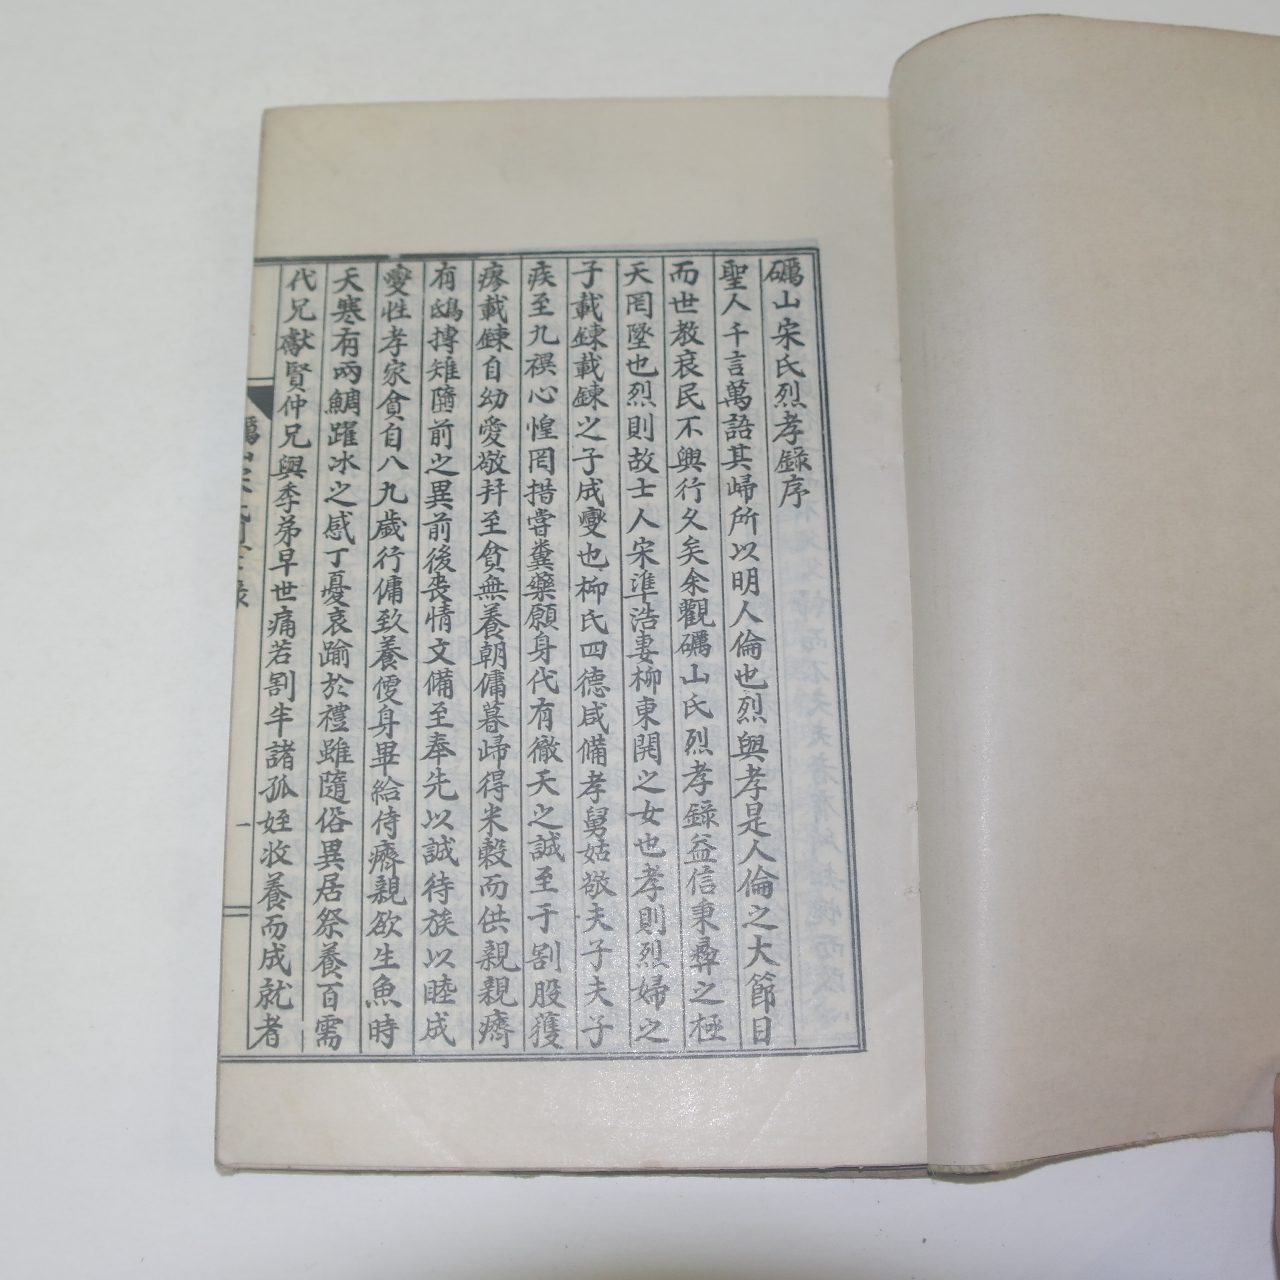 礪山宋氏烈孝錄序
聖人千言萬語其歸所以明人倫也烈與孝是人倫之大節目
而世敎衰民不興行久矣余觀礪山氏烈孝錄益信秉彛之極
天罔墜也烈則故士人宋準浩妻柳東開之女也孝則烈婦之
子載鍊載鍊之子成燮也柳氏四德咸備孝舅姑敬夫子夫子
疾至九禩心惶罔措甞糞藥願身代有徹天之誠至于割股獲
瘳載鍊自幼愛敬幷至貧無養朝傭暮歸得米穀而供親親癠
有鴟搏雉隨前之異前後喪情文備至奉先以誠待族以睦成
燮性孝家貧自八九歲行傭致養便身畢給侍癠親欲生魚時
天寒有兩鯛躍冰之感丁憂哀踰於禮雖隨俗異居祭養百需
代兄獻賢仲兄與季弟早世痛若割半諸孤姪收養而成就者
礪山宋氏烈孝錄
一